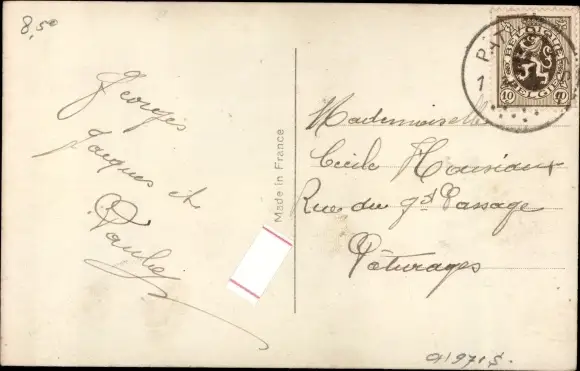 8,50
Georges
Jacques et
Paule
Made in France
Mademoiselle
Cécile Housiaux
Rue du gd Passage
Pâturages
PATU
1
BELGIQUE
BELGIË
10 10